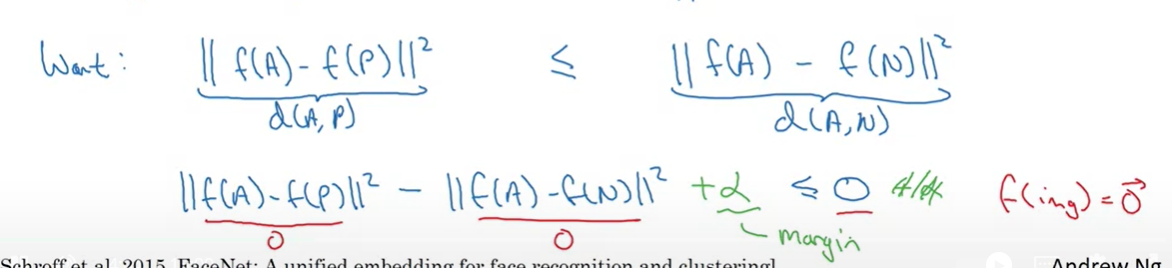 Want: ‖f(A) - f(P)‖² ≤ ‖f(A) - f(N)‖²
d(A,P) d(A,N)
‖f(A)-f(P)‖² - ‖f(A)-f(N)‖² + α ≤ 0 f(img) = 0⃗
0 0 margin
Schroff et al. 2015, FaceNet: A unified embedding for face recognition and clustering]
Andrew Ng